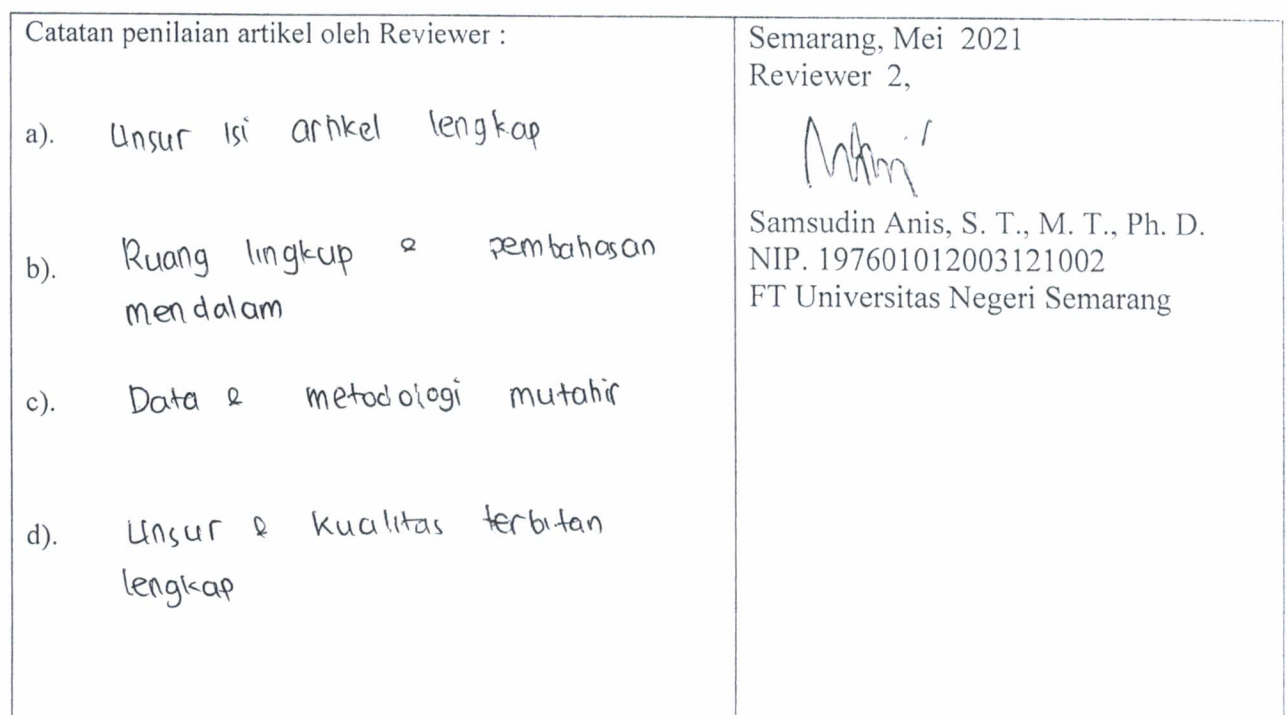 Catatan penilaian artikel oleh Reviewer :
a). Unsur isi artikel lengkap
b). Ruang lingkup & pembahasan
mendalam
c). Data & metodologi mutahir
d). Unsur & kualitas terbitan
lengkap
Semarang, Mei 2021
Reviewer 2,
Samsudin Anis, S. T., M. T., Ph. D.
NIP. 197601012003121002
FT Universitas Negeri Semarang